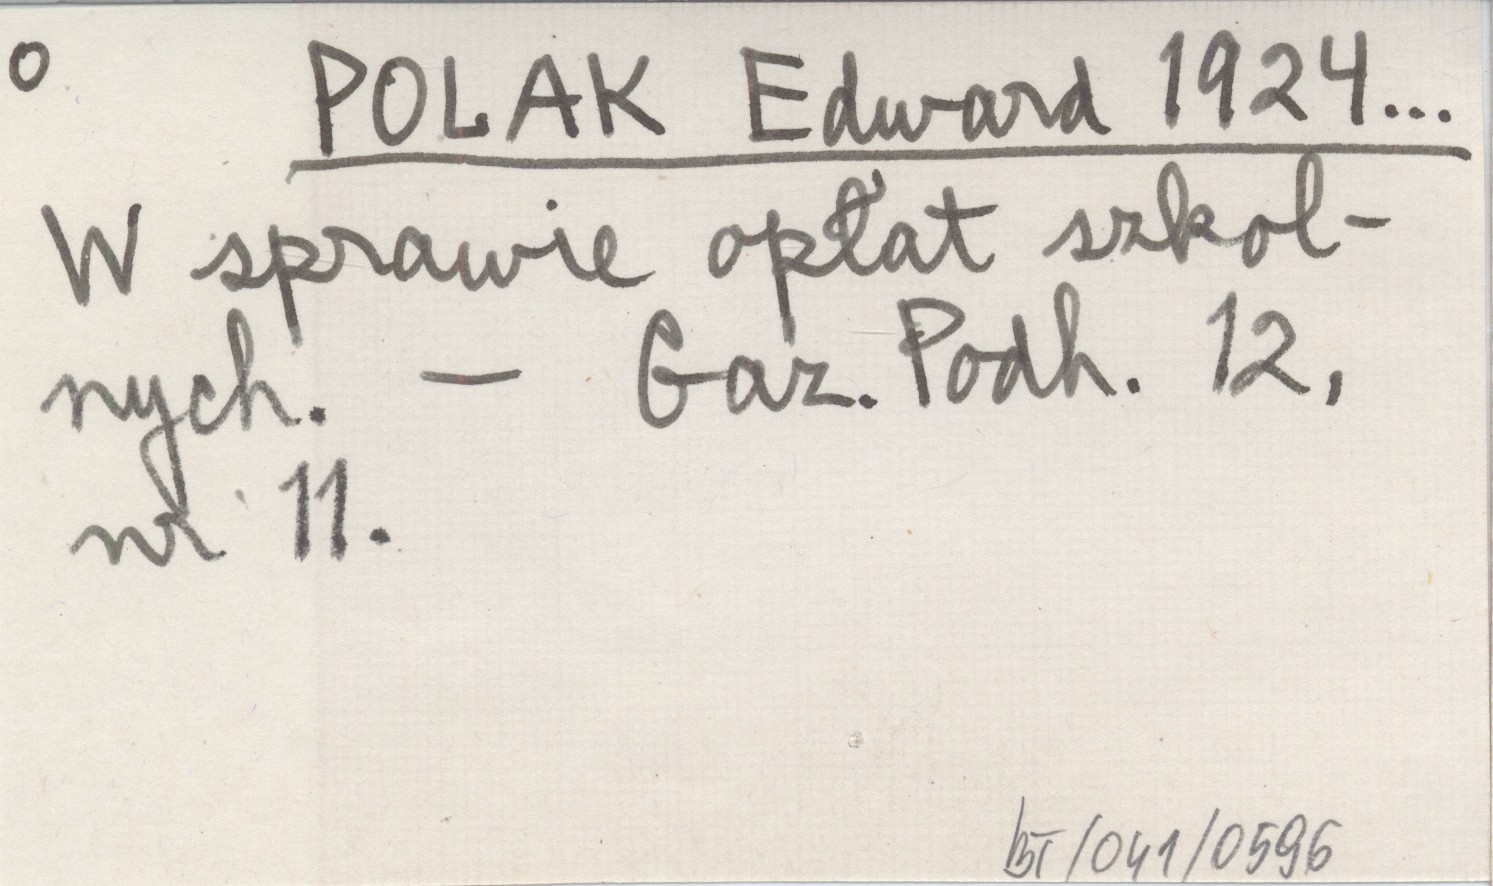 o POLAK Edward 1924...
W sprawie opłat szkol-
nych. — Gaz. Podh. 12,
nr 11.
BT/041/0596